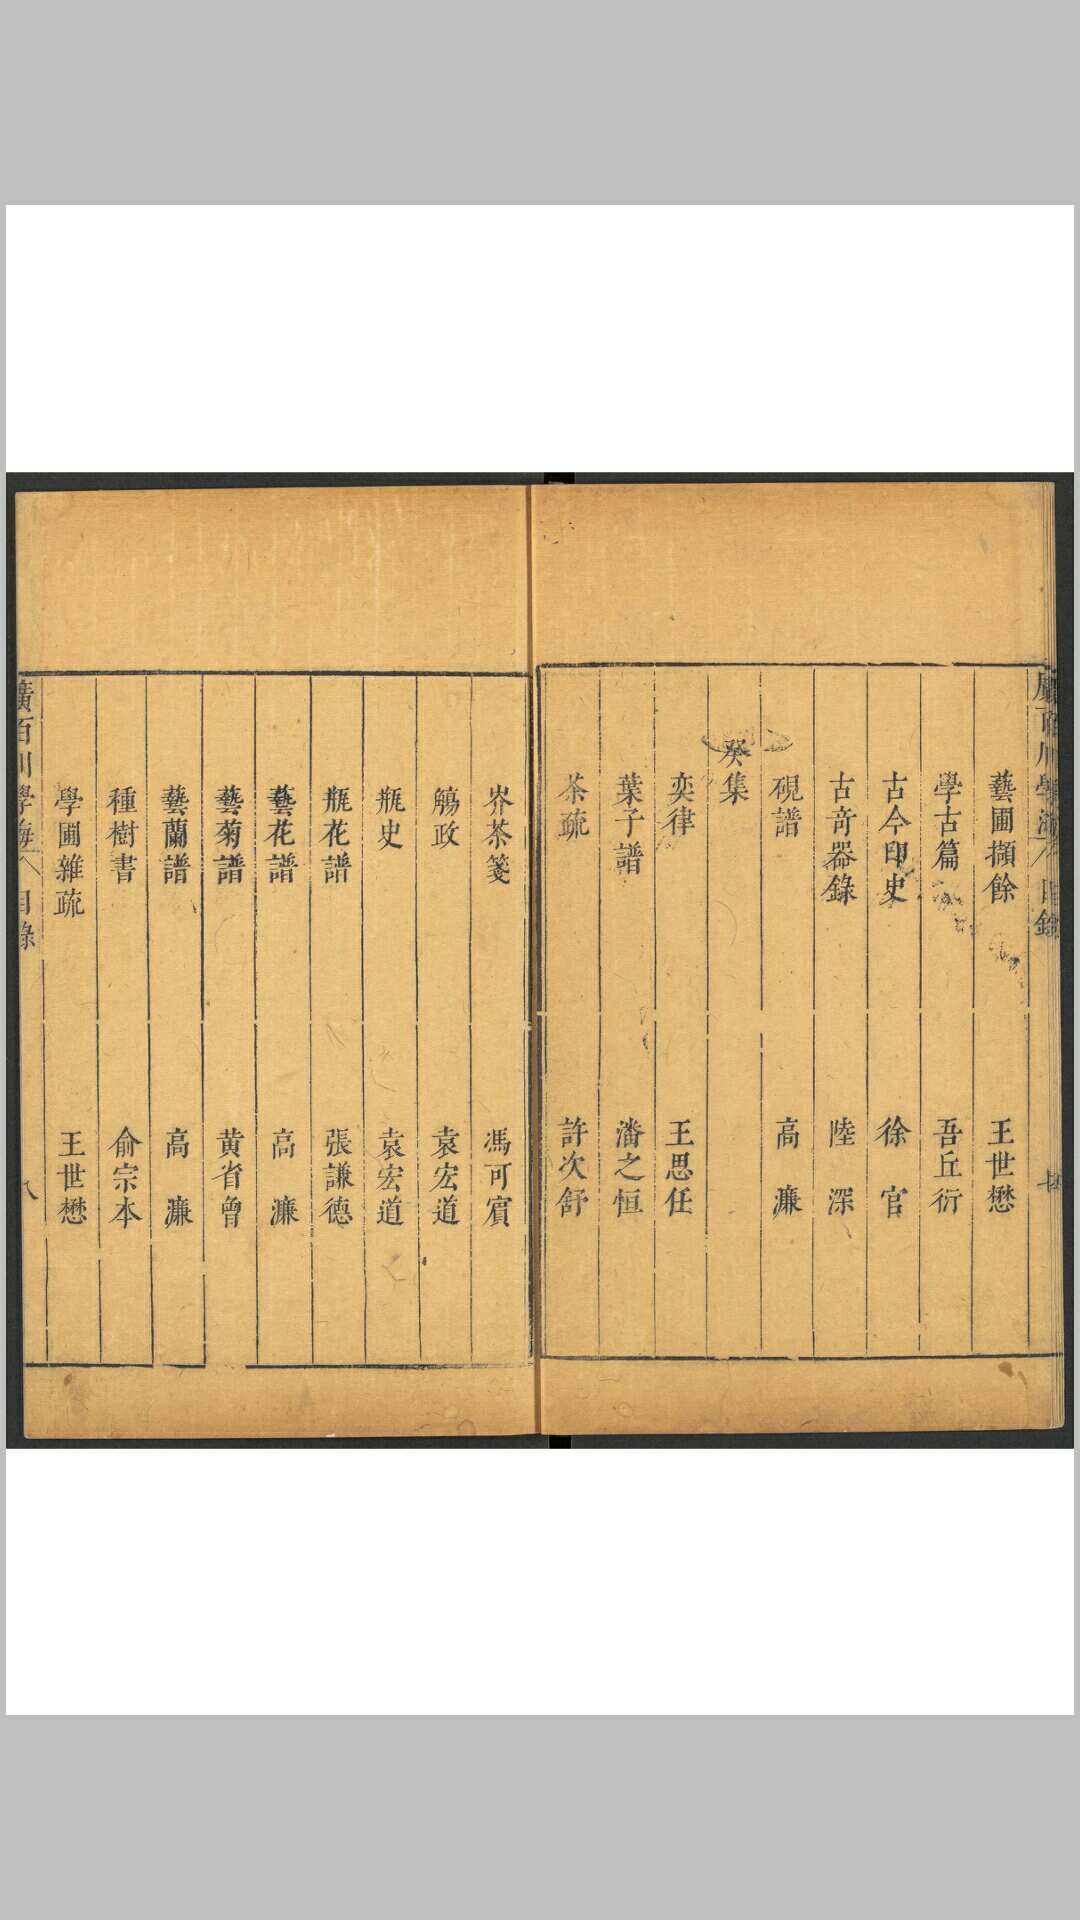 藝圃擷餘 王世懋
學古篇 吾丘衍
古今印史 徐官
古奇器錄 陸深
硯譜 高濂
癸集
奕律 王思任
葉子譜 潘之恒
茶疏 許次舒
岕茶箋 馮可賓
觴政 袁宏道
瓶史 袁宏道
瓶花譜 張謙德
藝花譜 高濂
藝菊譜 黄省曾
藝蘭譜 高濂
種樹書 俞宗本
學圃雜疏 王世懋
廣百川學海 目錄 八